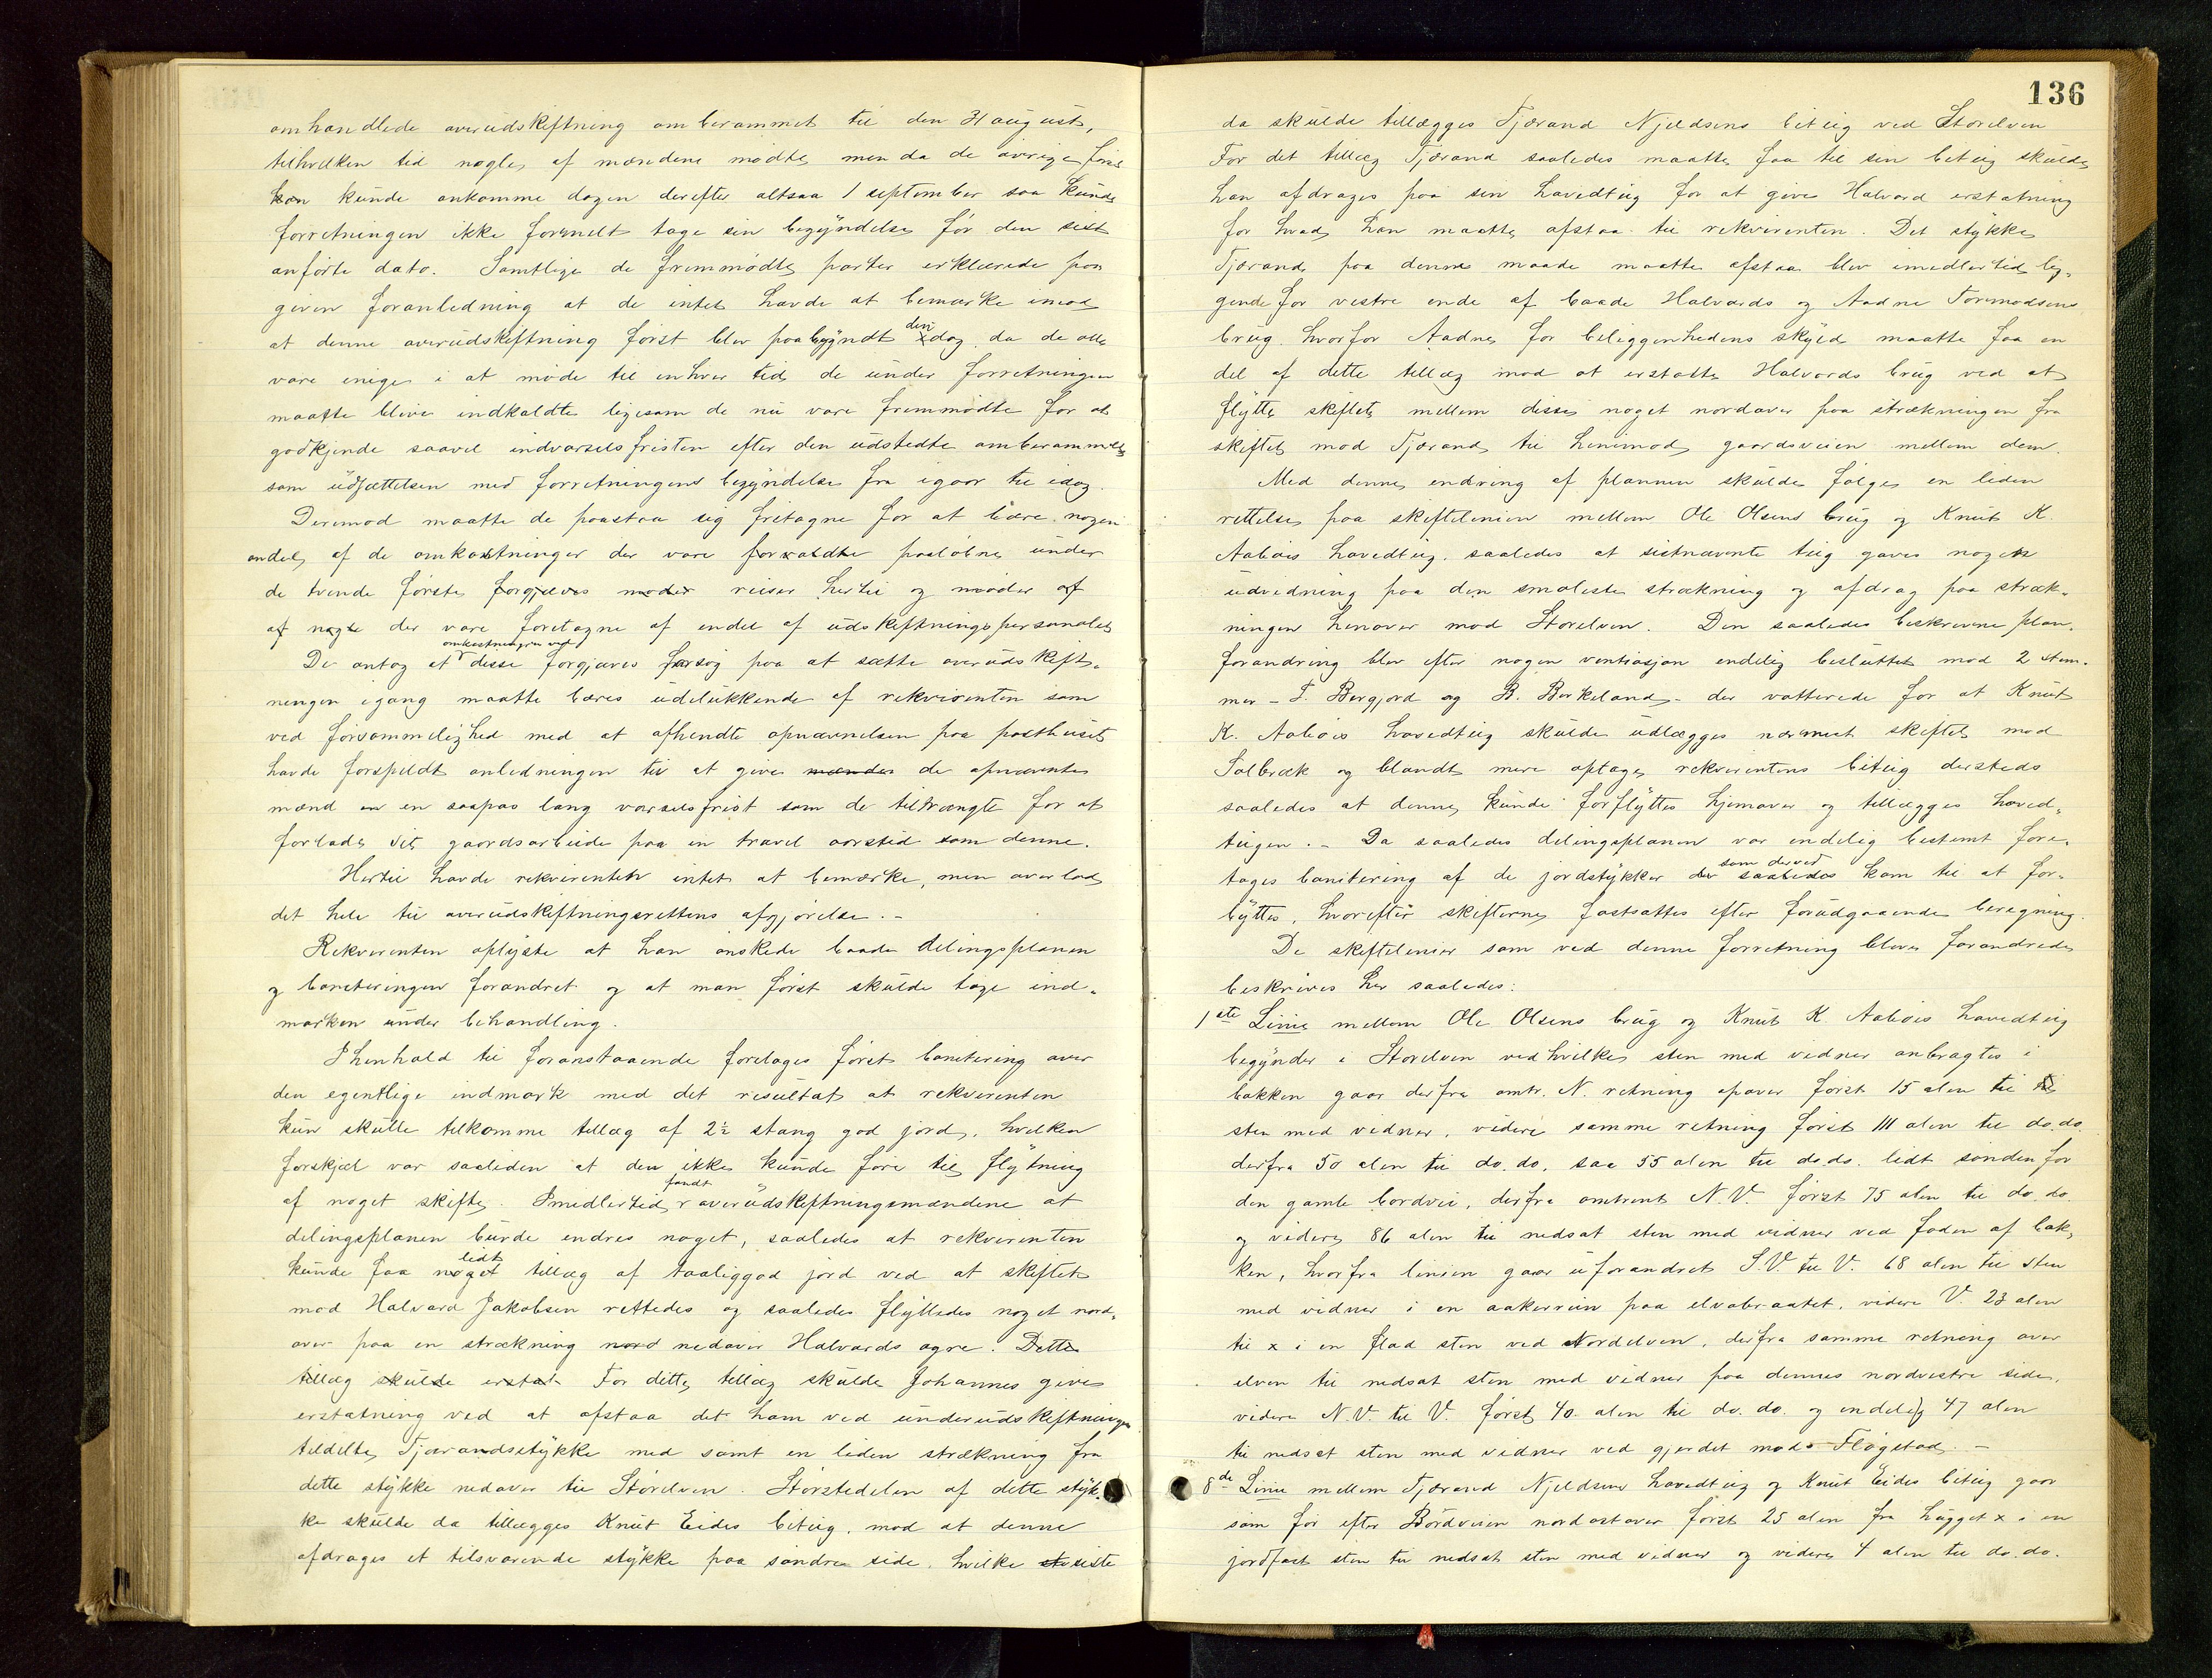 omhandlede overudskiftning omberammet til den 31 august,
tilhvilken tid nogle af mændene mødte, men da de øvrige først
kan kunde ankomme dagen derefter altsaa 1 september saa kunde
forretningen ikke formelt tage sin begyndelse før den sist
anførte dato. Samtlige de fremmødte parter erklærede paa
given foranledning at de intet havde at bemærke imod
at denne overudskiftning først blev paabegyndt den dag da de alle
vare enige i at møde til enhver tid de under forretningen
maatte blive indkaldte ligesom de nu vare fremmødte for at
godkjende saavel indvarselsfristen efter den udstedte omberammelse
som udsættelsen med forretningens begyndelse fra igaar til idag.
Derimod maatte de paastaa sig fritagne for at bære nogen
andel af de omkostninger der vare forvoldte paaløbne under
de tvende første forgjæves møder reiser hertil og møder af
af nogle der vare foretagne af endel af udskiftningspersonalet
De antog at omkostningerne ved disse forgjæves forsøg paa at sætte overudskift-
ningen igang maatte bæres udelukkende af rekvirenten som
ved forsømmelighed med at afhendte opnævnelsen paa posthuset
havde forspildt anledningen til at give mænder de opnævnte
mænd en en saapas lang varselsfrist som de tiltrængte for at
forlade sit gaardsarbeide paa en travel aarstid som denne.
Hertil havde rekvirenten intet at bemærke, men overlod
det hele til overudskiftningsrettens afgjørelse. -
Rekvirenten oplyste at han ønskede baade delingsplanen
og boniteringen forandret og at man først skulde tage ind-
marken under behandling.
I henhold til foranstaaende foretoges først bonitering over
den egentlige indmark med det resultat at rekvirenten
kun skulle tilkomme tillæg af 2½ stang god jord, hvilken
forskjel var saaliden at den ikke kunde føre til flytning
af noget skifte. Imedlertid fandt overudskiftningsmændene at
delingsplanen burde endres noget, saaledes at rekvirenten
kunde faa noget lidt tillæg af taaliggod jord ved at skiftet
mod Halvard Jakobsen rettedes og saaledes flyttedes noget nord-
over paa en strækning nord nedover Halvards agre. Dette
tillæg skulde erstat For dette tillæg skulde Johannes give
erstatning ved at afstaa det ham ved underudskiftningen
tildelte Tjærandsstykke med samt en liden strækning fra
dette stykke nedover til Storelven. Størstedelen af dette styk-
ke skulde da tillægges Knut Eides biteig, mod at denne
afdroges et tilsvarende stykke paa søndre side, hvilke st siste
136
da skulde tillægges Tjærand Njeldsens biteig ved Storelven
For det tillæg Tjærand saaledes maatte faa til sin biteig skulde
han afdrages paa sin hovedteig for at give Halvard erstatning
for hvad han maatte afstaa til rekvirenten. Det stykke
Tjærand paa denne maade maatte afstaa blev imedlertid lig-
gende for vestre ende af baade Halvards og Aadne Tormodsens
brug hvorfor Aadne for beliggenhedens skyld maatte faa en
del af dette tillæg mod at erstatte Halvards brug ved at
flytte skiftet mellem disse noget nordover paa strækningen fra
skiftet mod Tjærand til henimod gaardsveien mellem dem.
Med denne endring af planen skulde følge en liden
rettelse paa skiftelinien mellem Ole Olsens brug og Knut K.
Aabøes hovedteig, saaledes at sistnævnte teig gaves nogen
udvidning paa den smaleste strækning og afdrag paa stræk-
ningen henover mod Storelven. Den saaledes beskrevne plan-
forandring blev efter nogen ventiasjon endelig besluttet mod 2 stem-
mer - T. Bergjord og B. Birkeland - der votterede for at Knut
K. Aabøes hovedteig skulde udlægges nærmest skiftet mod
Solbræk og blandt mere optage rekvirentens biteig dersteds
saaledes at denne kunde forflyttes hjemover og tillægges hoved-
teigen. - Da saaledes delingsplanen var endelig bestemt fore-
toges bonitering af de jordstykker der saaledes som derved kom til at for-
byttes, hvorefter skifterne fastsattes efter forudgaaende beregning.
De skiftelinier som ved denne forretning bleve forandrede
beskrives her saaledes:
1ste Linie mellem Ole Olsens brug og Knut K. Aabøes hovedteig
begynder i Storelven ved hvilken sten med vidner anbragtes i
bakken gaar derfra omtr. N. retning opover først 15 alen til til
sten med vidner, videre samme retning først 111 alen til do. do.
derfra 50 alen til do. do. saa 55 alen til do. do. lidt søndenfor
den gamle bordvei, derfra omtrent N.V. først 75 alen til do. do.
og videre 86 alen til nedsat sten med vidner ved foden af bak-
ken, hvorfra linien gaar uforandret S.V. til V. 68 alen til sten
med vidner i en aakerrein paa elvabraatet, videre V. 23 alen
til x i en flad sten ved Nordelven, derfra samme retning over
elven til nedsat sten med vidner paa dennes nordvestre side,
videre N.V. til V. først 40 alen til do. do. og endelig 47 alen
til nedsat sten med vidner ved gjerdet mod Fløgstad. -
8de Linie mellem Tjærand Njeldsens hovedteig og Knut Eides biteig gaar
som før efter Bordveien nordostover først 25 alen fra hugget x i en
jordfast sten til nedsat sten med vidner og videre 4 alen til do. do.